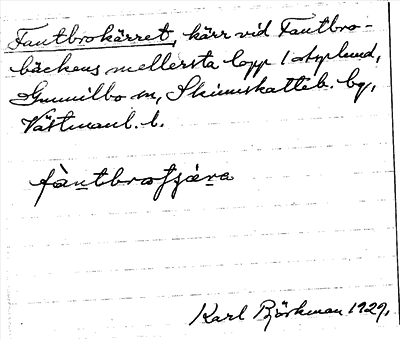 Fantbrokärret, kärr vid Fantbro-
bäckens mellersta lopp i
Gunnilbo sn, Skinnskatteb. bg,
Västmanl. l.
fàntbroçæra
Karl Björkman 1929.